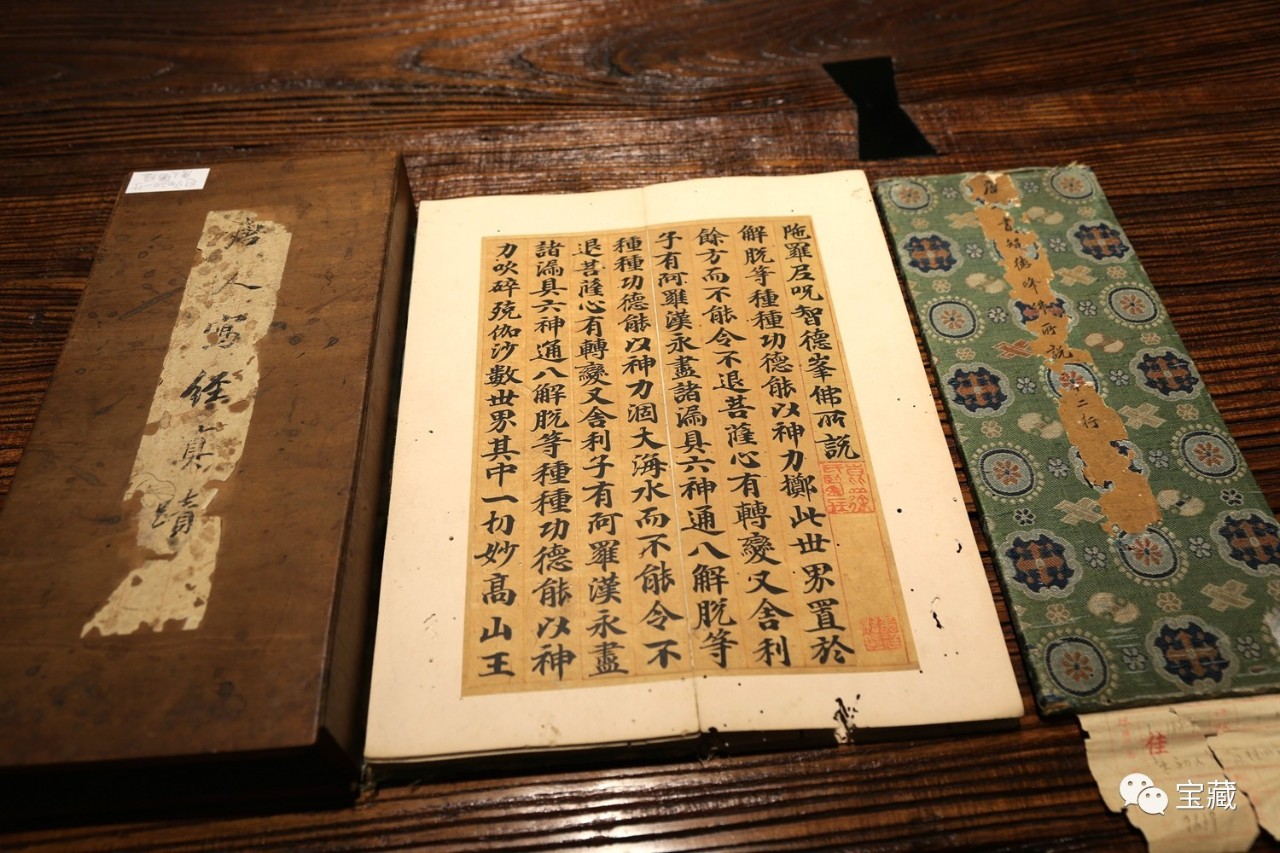 唐人寫經真蹟
陁羅尼呪智德峯佛所說
解脫等種種功德能以神力擲此世界置於
餘方而不能令不退菩薩心有轉變又舍利
子有阿羅漢永盡諸漏具六神通八解脫等
種種功德能以神力涸大海水而不能令不
退菩薩心有轉變又舍利子有阿羅漢永盡
諸漏具六神通八解脫等種種功德能以神
力吹碎殑伽沙數世界其中一切妙高山王
唐
所說
佳
宝藏